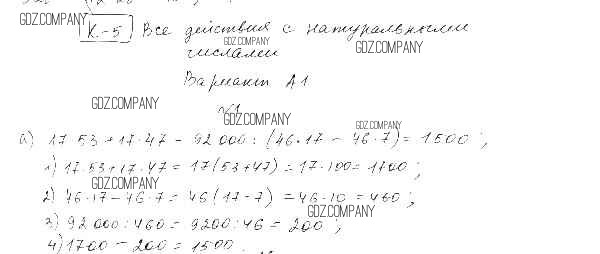 GDZ.COMPANY
К-5 Все действия с натуральными
GDZ.COMPANY
GDZ.COMPANY
числами
Вариант А1
GDZ.COMPANY
№1
GDZ.COMPANY
GDZ.COMPANY
а) 17·53+17·47-92000:(46·17-46·7)=1500;
1) 17·53+17·47=17(53+47)=17·100=1700;
GDZ.COMPANY
2) 46·17-46·7=46(17-7)=46·10=460;
GDZ.COMPANY
3) 92000:460=9200:46=200;
4) 1700-200=1500.